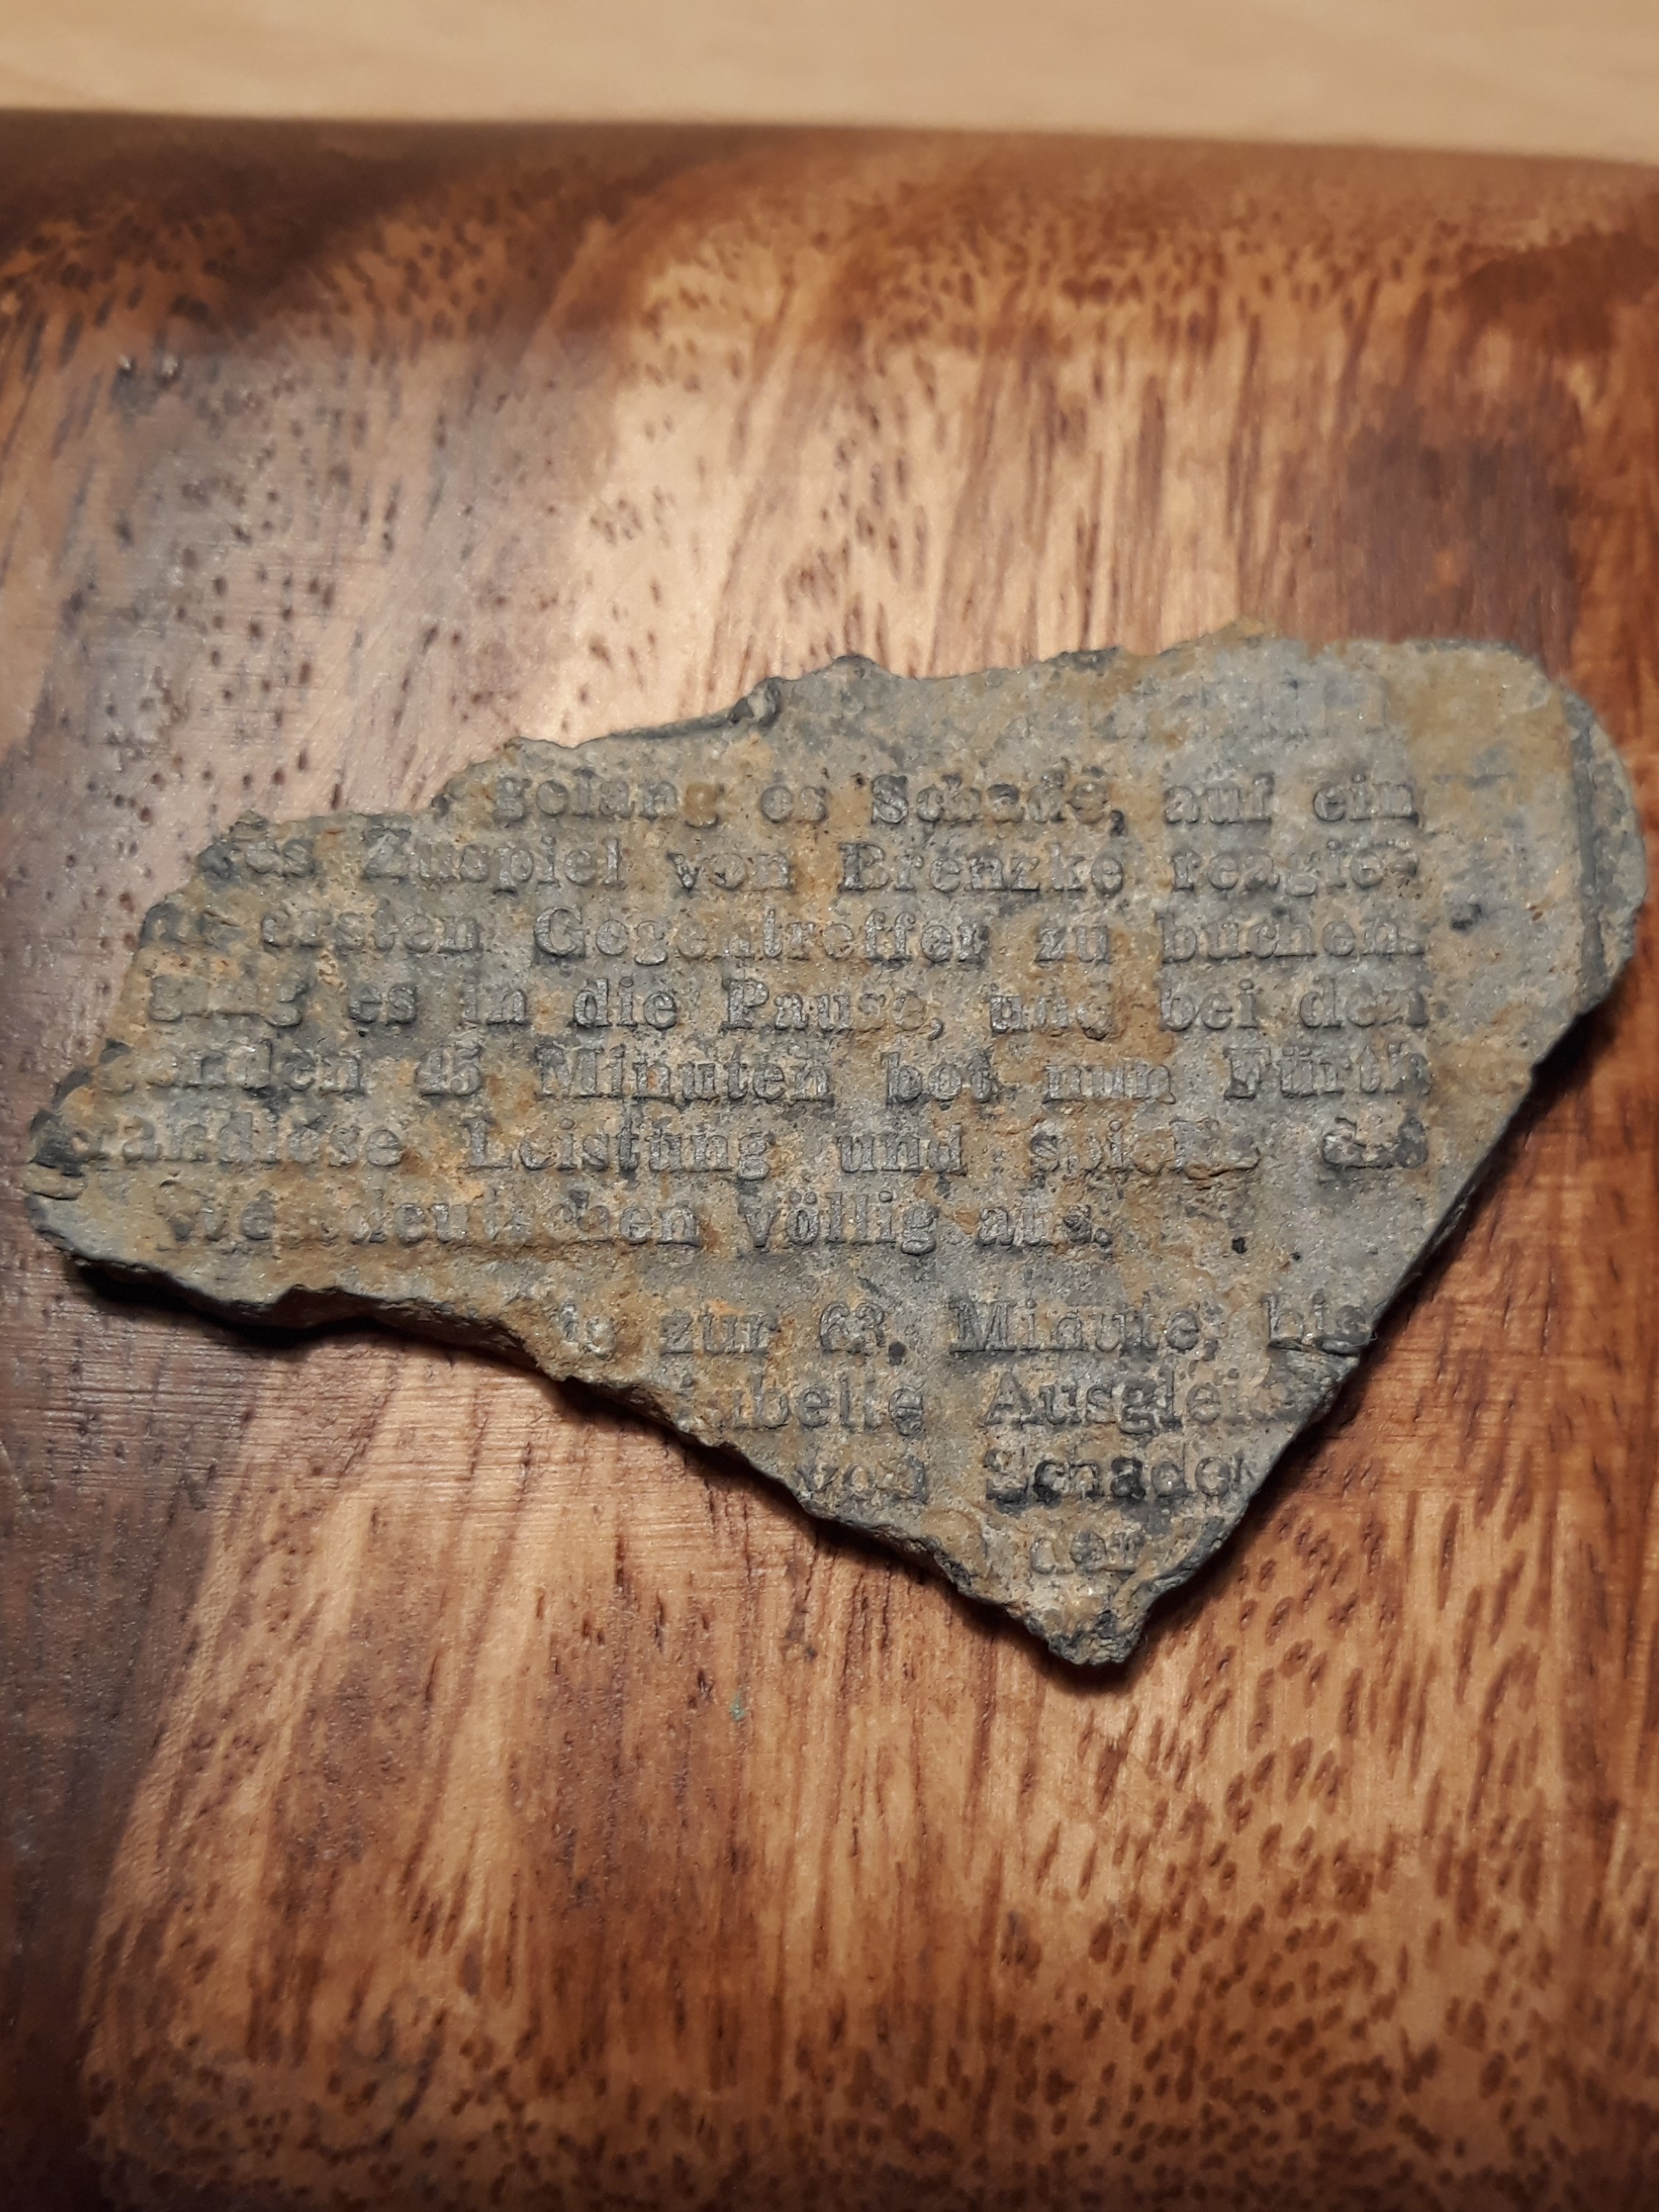 gelang es Schade, auf ein
es Zuspiel von Brenzke reagie-
ersten Gegentreffer zu buchen.
ging es in die Pause, und bei den
anden 45 Minuten bot nun Fürth
randiose Leistung und spielte das
deutschen völlig aus.
zur 63. Minute, bis
Ausglei
von Schade
der